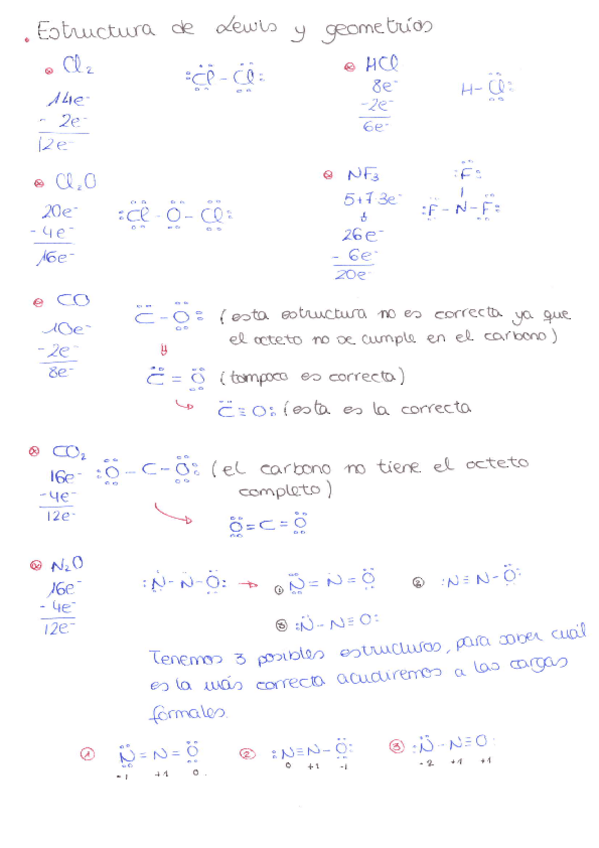 . Estructura de Lewis y geometrías
Cl₂
14e⁻
- 2e⁻
12e⁻
:Cl - Cl:
HCl
8e⁻
-2e⁻
6e⁻
H - Cl:
Cl₂O
20e⁻
- 4e⁻
16e⁻
:Cl - O - Cl:
NF₃
5+7·3e⁻
26e⁻
- 6e⁻
20e⁻
:F:
:F - N - F:
CO
10e⁻
- 2e⁻
8e⁻
C - O: (esta estructura no es correcta ya que
el octeto no se cumple en el carbono)
C = O (tampoco es correcta)
C ≡ O: (esta es la correcta
CO₂
16e⁻
-4e⁻
12e⁻
:O - C - O: (el carbono no tiene el octeto
completo)
O = C = O
N₂O
16e⁻
- 4e⁻
12e⁻
:N - N - O: → ① N = N = O ② :N ≡ N - O:
③ :N - N ≡ O:
Tenemos 3 posibles estructuras, para saber cuál
es la más correcta acudiremos a las cargas
formales.
① N = N = O ② :N ≡ N - O: ③ :N - N ≡ O:
-1 +1 0 0 +1 -1 -2 +1 +1